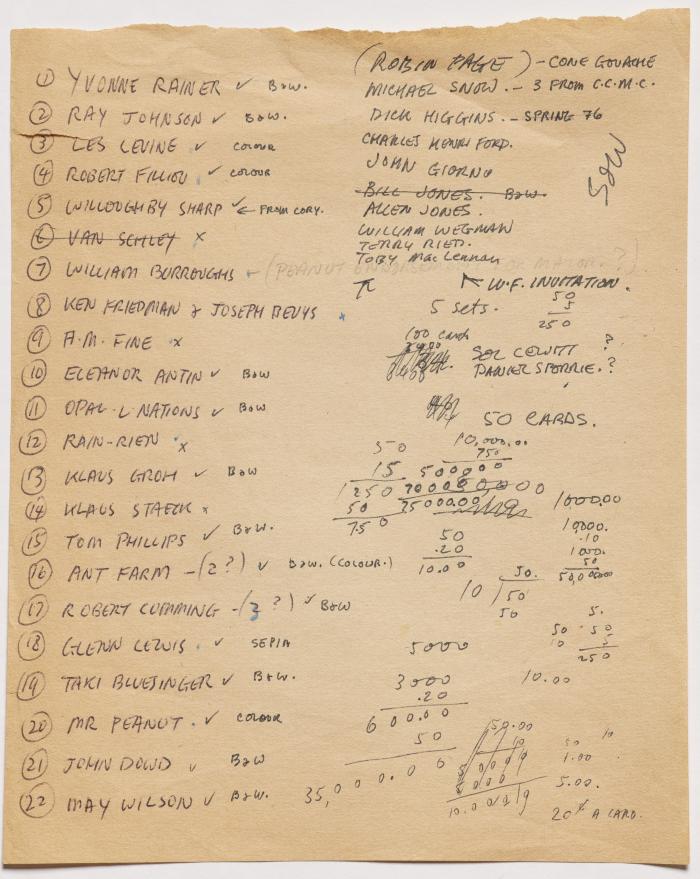 ① YVONNE RAINER ✓ B&W.
② RAY JOHNSON ✓ B&W.
③ LES LEVINE ✓ COLOUR
④ ROBERT FILLIOU ✓ COLOUR
⑤ WILLOUGHBY SHARP ✓ ← FROM CORY.
⑥ VAN SCHLEY X
⑦ WILLIAM BURROUGHS - (PEANUT
⑧ KEN FRIEDMAN & JOSEPH BEUYS
⑨ A.M. FINE X
⑩ ELEANOR ANTIN ✓ B&W
⑪ OPAL L NATIONS ✓ B&W
⑫ RAIN-RIEN X
⑬ KLAUS GROH ✓ B&W
⑭ KLAUS STAECK X
⑮ TOM PHILLIPS ✓ B&W.
⑯ ANT FARM - (2?) ✓ B&W. (COLOUR.)
⑰ ROBERT CUMMING - (3?) ✓ B&W
⑱ GLENN LEWIS. ✓ SEPIA
⑲ TAKI BLUESINGER ✓ B&W.
⑳ MR PEANUT. ✓ COLOUR
㉑ JOHN DOWD ✓ B&W
㉒ MAY WILSON ✓ B&W.
(ROBIN PAGE) - CONE GOUACHE
MICHAEL SNOW. - 3 FROM C.C.M.C.
DICK HIGGINS. - SPRING 76
CHARLES HENRI FORD.
JOHN GIORNO
BILL JONES. B&W
ALLEN JONES.
WILLIAM WEGMAN
TERRY RIED.
TOBY MacLennan
W.F. INVITATION.
5 sets.
50
5
250
100 cards
SOL LEWITT ?
DANIER SPORRIE. ?
50 CARDS.
50
15
1250
50
750
10,000.00
750
1000.00
50
.20
10.00
10,000.
.10
1000.
50
50,000.00
50.
10 50
50
5.
50 50
10 5
250
5000
3000
.20
600.00
50
35,000.00
10.00
50.00
10
50
1.00
5.00.
20¢ A CARD.